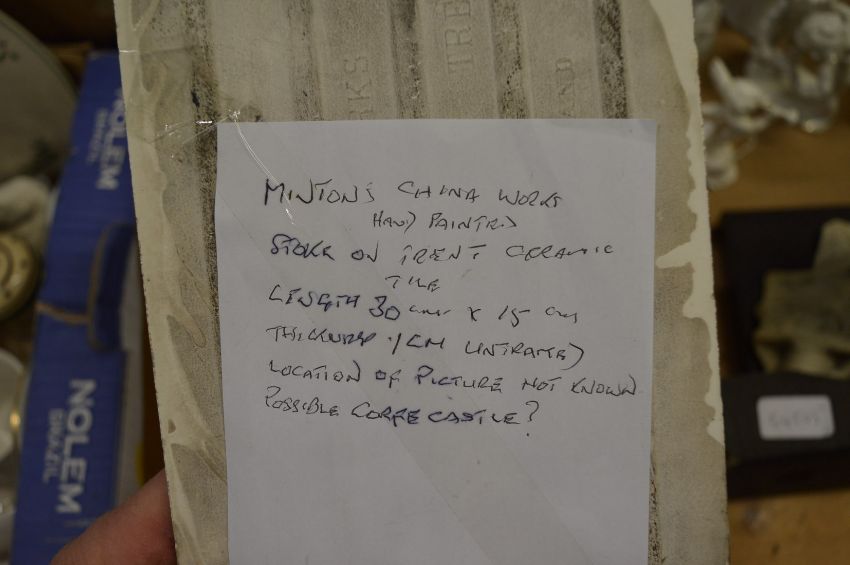 RKS
TRE
AND
MINTON'S CHINA WORKS
HAND PAINTED
STOKE ON TRENT CERAMIC
TILE
LENGTH 30 cms x 15 cms
THICKNESS 1CM UNFRAMED
LOCATION OF PICTURE NOT KNOWN
POSSIBLE CORFE CASTLE?
NOLEM
BRAZIL
NOLEM
BRAZIL